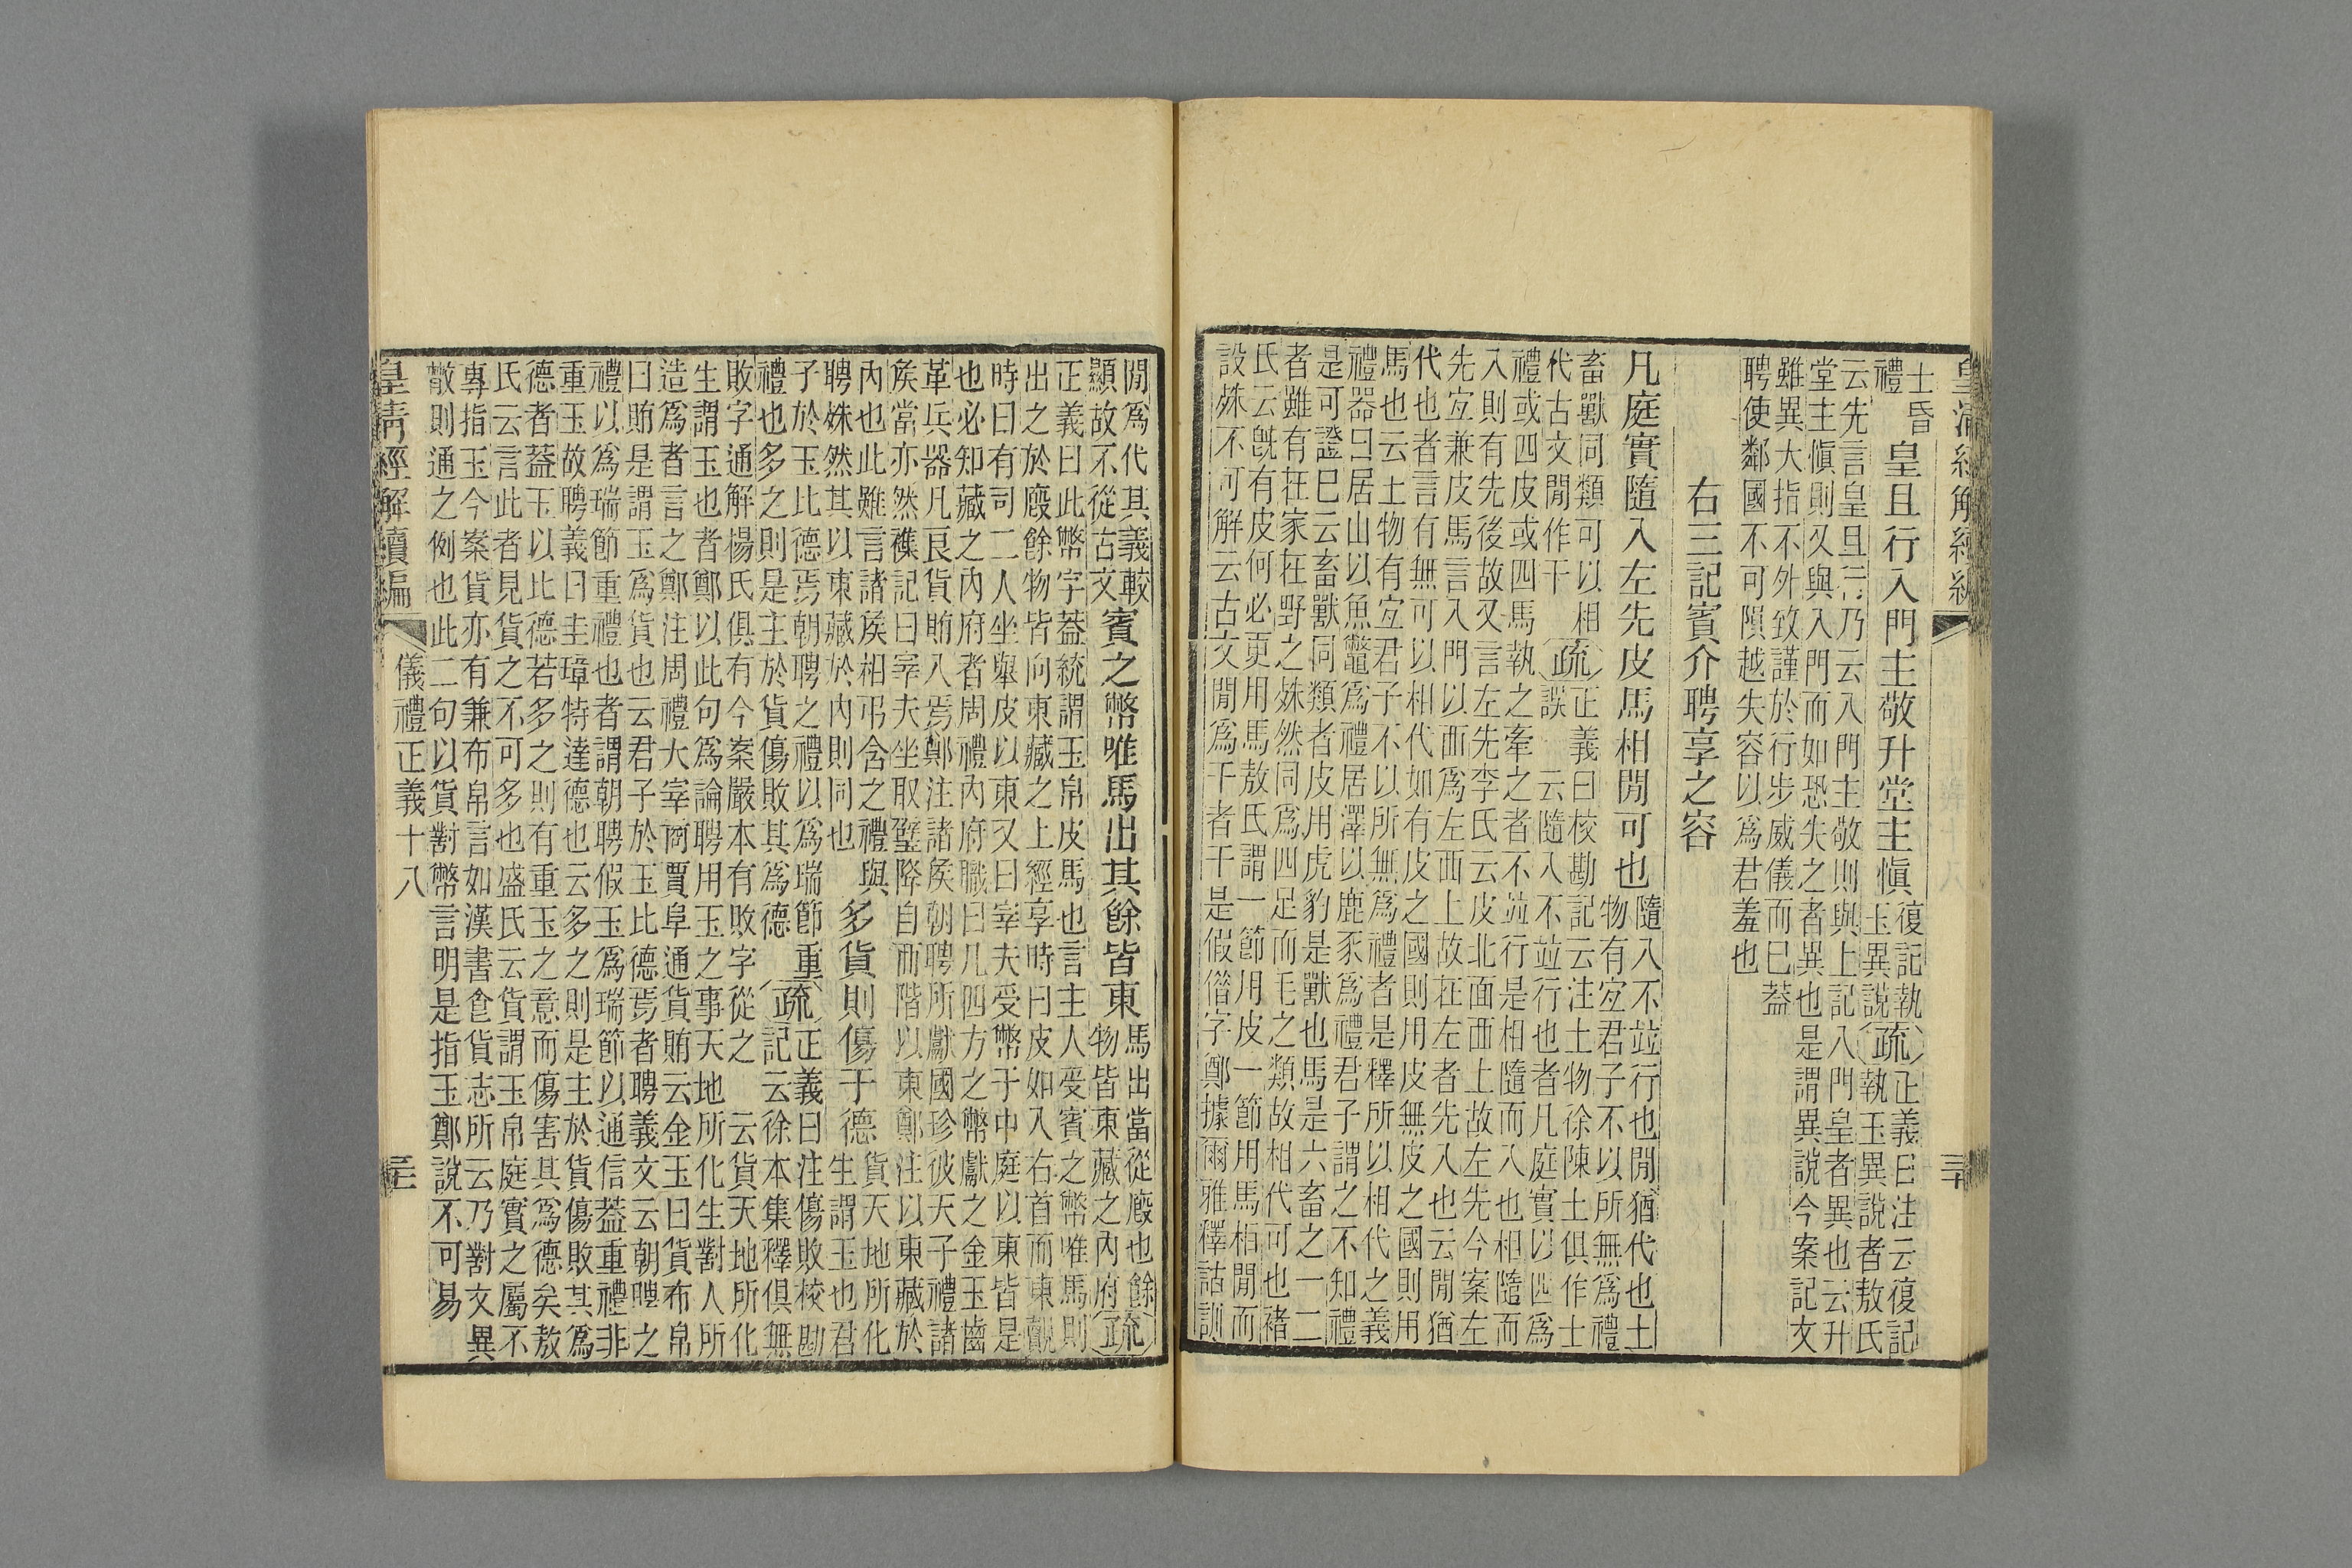 皇清經解續編　三十
士昏
禮
皇且行入門主敬升堂主慎
復記執
玉異說
疏
正義曰注云復記
執玉異說者敖氏
云先言皇且行乃云入門主敬則與上記入門皇者異也云升
堂主慎則又與入門而如恐失之者異也是謂異說今案記文
雖異大指不外致謹於行步威儀而已蓋
聘使鄰國不可隕越失容以爲君羞也
右三記賓介聘享之容
凡庭實隨入左先皮馬相閒可也
隨入不竝行也閒猶代也土
物有宜君子不以所無爲禮
畜獸同類可以相
代古文閒作干
疏
正義曰校勘記云注土物徐陳土俱作士
誤　云隨入不竝行也者凡庭實以四爲
禮或四皮或四馬執之牽之者不竝行是相隨而入也相隨而
入則有先後故又言左先李氏云皮北面西上故左先今案左
先宜兼皮馬言入門以西爲左西上故在左者先入也云閒猶
代也者言有無可以相代如有皮之國則用皮無皮之國則用
馬也云土物有宜君子不以所無爲禮者是釋所以相代之義
禮器曰居山以魚鼈爲禮居澤以鹿豕爲禮君子謂之不知禮
是可證巳云畜獸同類者皮用虎豹是獸也馬是六畜之一二
者雖有在家在野之殊然同爲四足而毛之類故相代可也褚
氏云旣有皮何必更用馬敖氏謂一節用皮一節用馬相閒而
設殊不可解云古文閒爲干者干是假借字鄭據爾雅釋詁訓
閒爲代其義較
顯故不從古文
賓之幣唯馬出其餘皆東
馬出當從廄也餘
物皆東藏之內府
疏
正義曰此幣字蓋統謂玉帛皮馬也言主人受賓之幣唯馬則
出之於廄餘物皆向東藏之上經享時曰皮如入右首而東覿
時曰有司二人坐舉皮以東又曰宰夫受幣于中庭以東皆是
也必知藏之內府者周禮內府職曰凡四方之幣獻之金玉齒
革兵器凡良貨賄入焉鄭注諸矦朝聘所獻國珍彼天子禮諸
矦當亦然襍記曰宰夫坐取璧降自西階以東鄭注以東藏於
內也此雖言諸矦相弔含之禮與
聘殊然其以東藏於內則同也
多貨則傷于德
貨天地所化
生謂玉也君
子於玉比德焉朝聘之禮以爲瑞節重
禮也多之則是主於貨傷敗其爲德
疏
正義曰注傷敗校勘
記云徐本集釋俱無
敗字通解楊氏俱有今案嚴本有敗字從之　云貨天地所化
生謂玉也者鄭以此句爲論聘用玉之事天地所化生對人所
造爲者言之鄭注周禮大宰商賈阜通貨賄云金玉曰貨布帛
曰賄是謂玉爲貨也云君子於玉比德焉者聘義文云朝聘之
禮以爲瑞節重禮也者謂朝聘假玉爲瑞節以通信蓋重禮非
重玉故聘義曰圭璋特達德也云多之則是主於貨傷敗其爲
德者蓋玉以比德若多之則有重玉之意而傷害其爲德矣敖
氏云言此者見貨之不可多也盛氏云貨謂玉帛庭實之屬不
專指玉今案貨亦有兼布帛言如漢書食貨志所云乃對文異
散則通之例也此二句以貨對幣言明是指玉鄭說不可易
皇清經解續編　儀禮正義十八　三十一